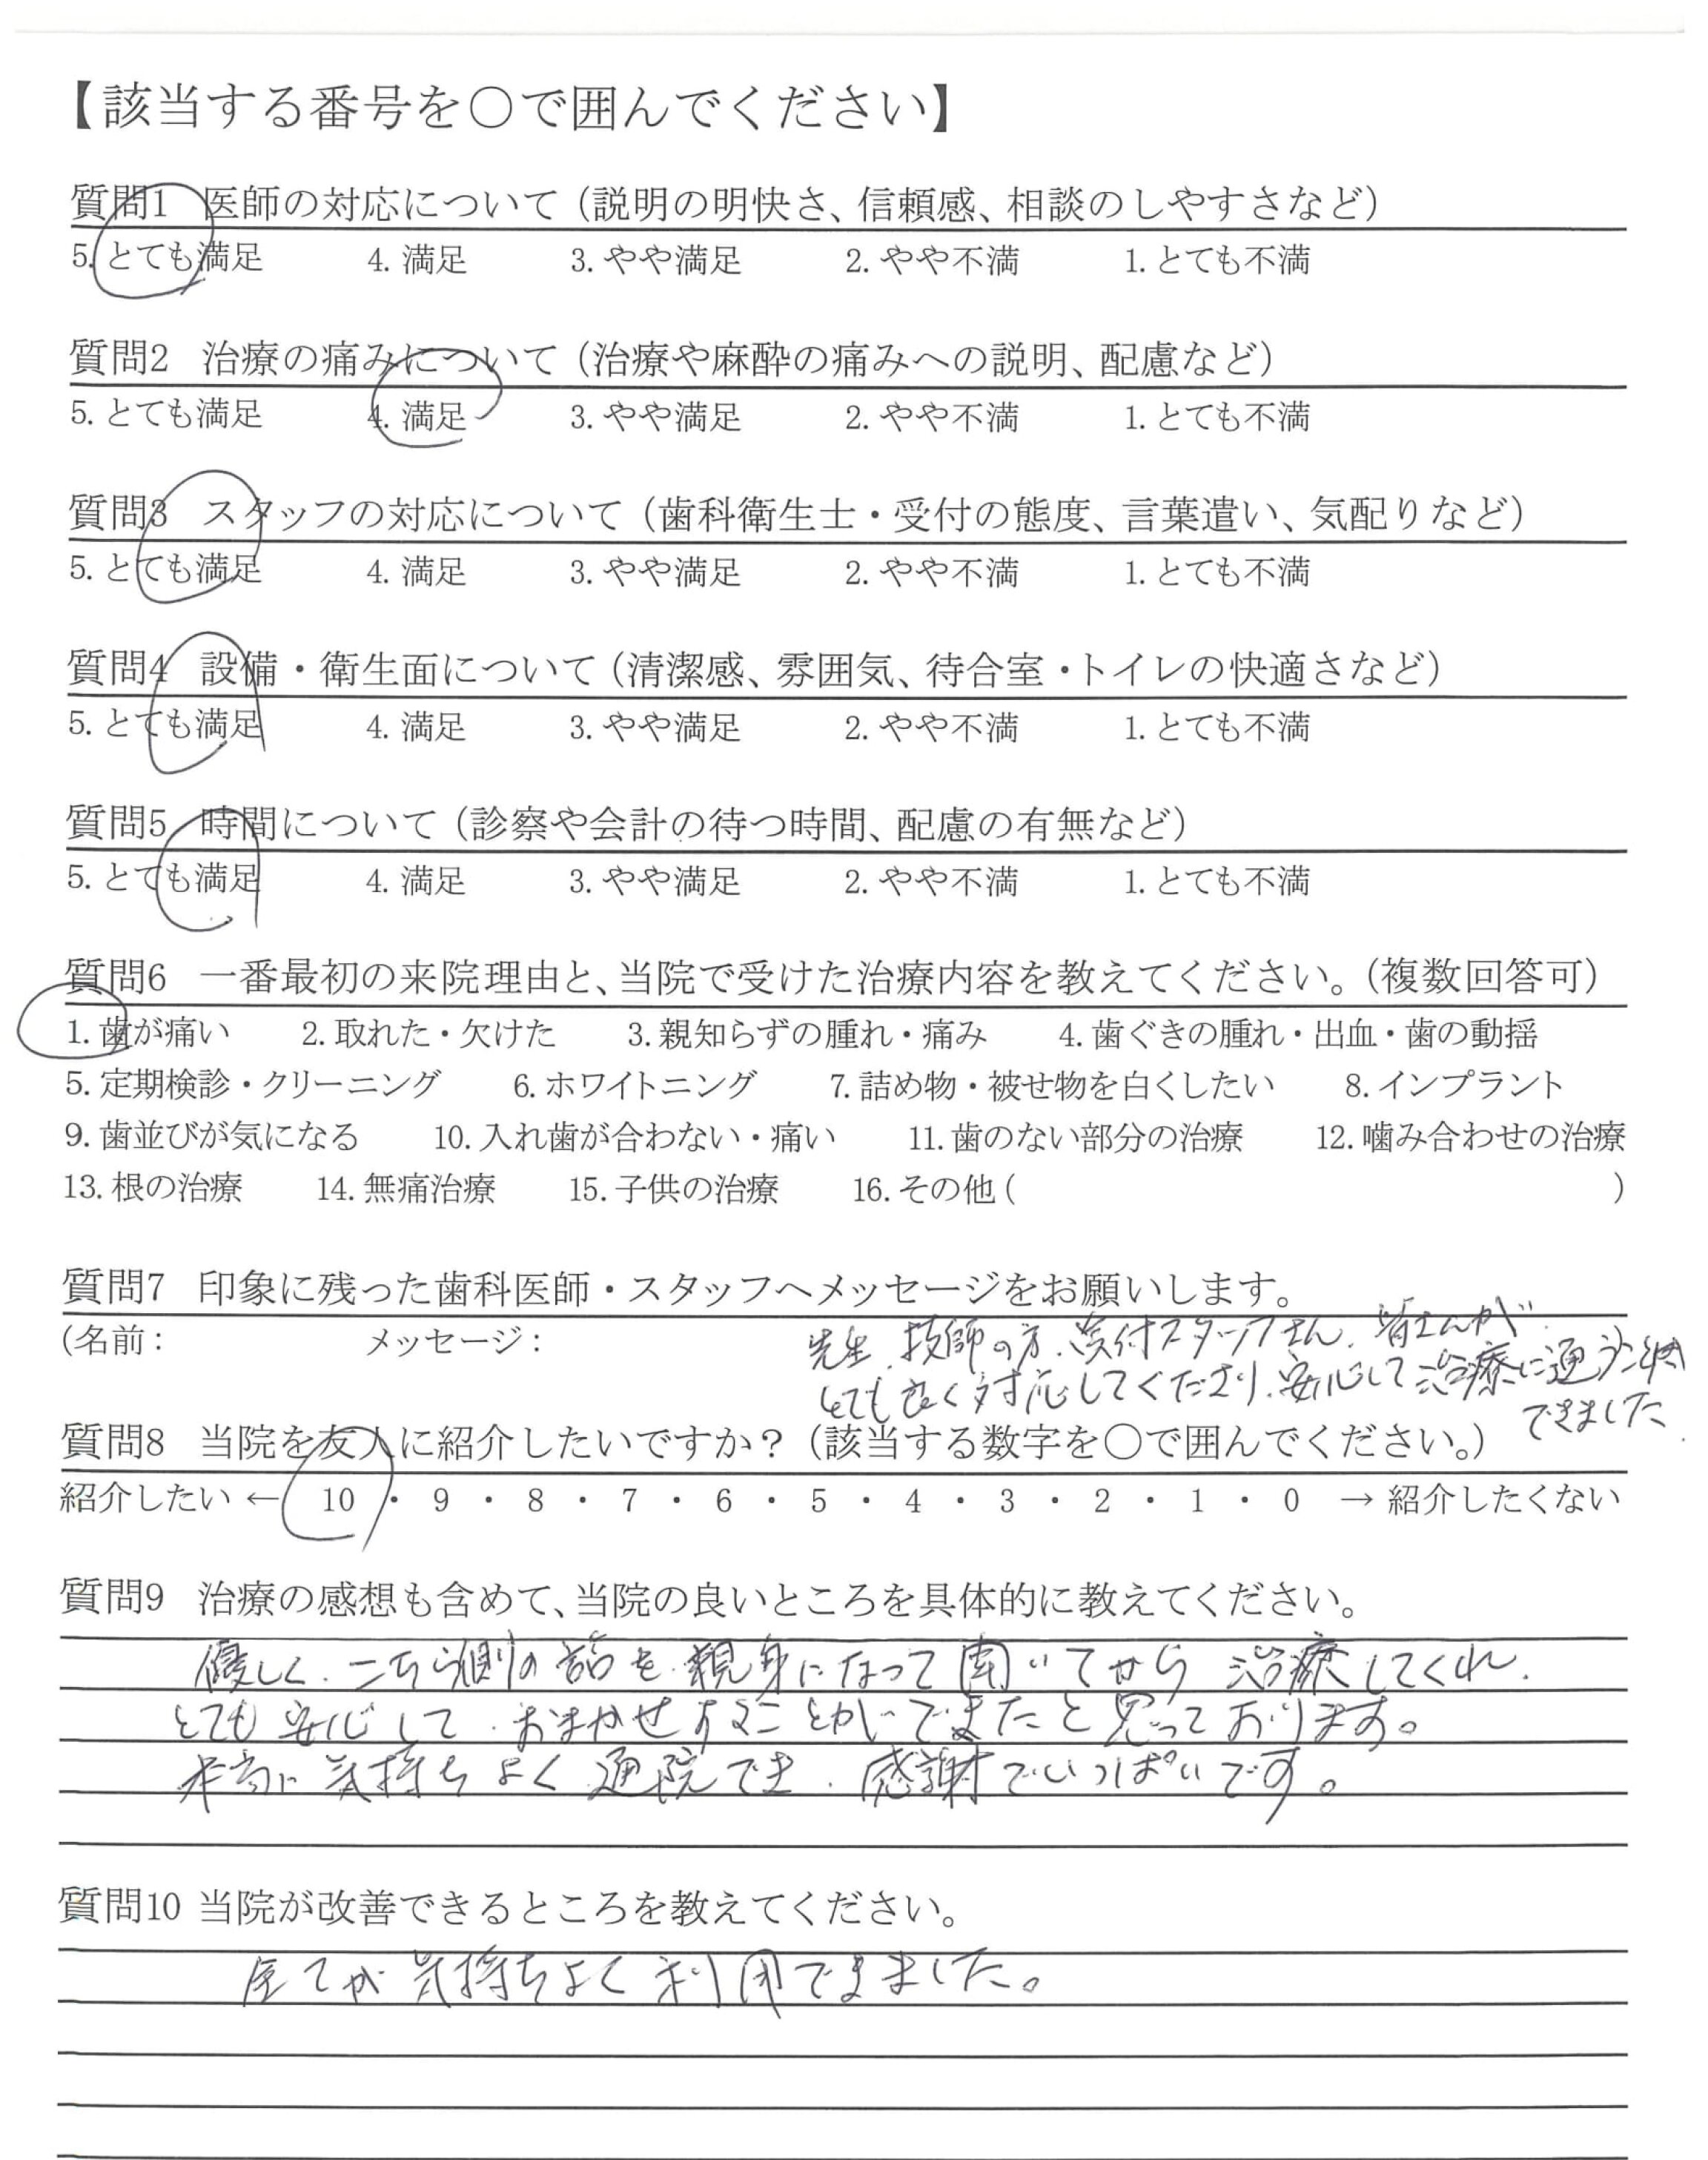 【該当する番号を○で囲んでください】
質問1 医師の対応について（説明の明快さ、信頼感、相談のしやすさなど）
5. とても満足 4. 満足 3. やや満足 2. やや不満 1. とても不満
質問2 治療の痛みについて（治療や麻酔の痛みへの説明、配慮など）
5. とても満足 4. 満足 3. やや満足 2. やや不満 1. とても不満
質問3 スタッフの対応について（歯科衛生士・受付の態度、言葉遣い、気配りなど）
5. とても満足 4. 満足 3. やや満足 2. やや不満 1. とても不満
質問4 設備・衛生面について（清潔感、雰囲気、待合室・トイレの快適さなど）
5. とても満足 4. 満足 3. やや満足 2. やや不満 1. とても不満
質問5 時間について（診察や会計の待つ時間、配慮の有無など）
5. とても満足 4. 満足 3. やや満足 2. やや不満 1. とても不満
質問6 一番最初の来院理由と、当院で受けた治療内容を教えてください。（複数回答可）
1. 歯が痛い 2. 取れた・欠けた 3. 親知らずの腫れ・痛み 4. 歯ぐきの腫れ・出血・歯の動揺
5. 定期検診・クリーニング 6. ホワイトニング 7. 詰め物・被せ物を白くしたい 8. インプラント
9. 歯並びが気になる 10. 入れ歯が合わない・痛い 11. 歯のない部分の治療 12. 噛み合わせの治療
13. 根の治療 14. 無痛治療 15. 子供の治療 16. その他 ( )
質問7 印象に残った歯科医師・スタッフへメッセージをお願いします。
(名前： メッセージ： 先生、技師の方、受付スタッフさん、皆さんが
とても良く対応してくださり、安心して治療に通うことが
できました
質問8 当院を友人に紹介したいですか？（該当する数字を○で囲んでください。）
紹介したい ← 10 ・ 9 ・ 8 ・ 7 ・ 6 ・ 5 ・ 4 ・ 3 ・ 2 ・ 1 ・ 0 → 紹介したくない
質問9 治療の感想も含めて、当院の良いところを具体的に教えてください。
優しく、こちら側の話を親身になって聞いてから治療してくれ、
とても安心して、おまかせすることができたと思っております。
本当に気持ちよく通院でき、感謝でいっぱいです。
質問10 当院が改善できるところを教えてください。
全てが気持ちよく利用できました。